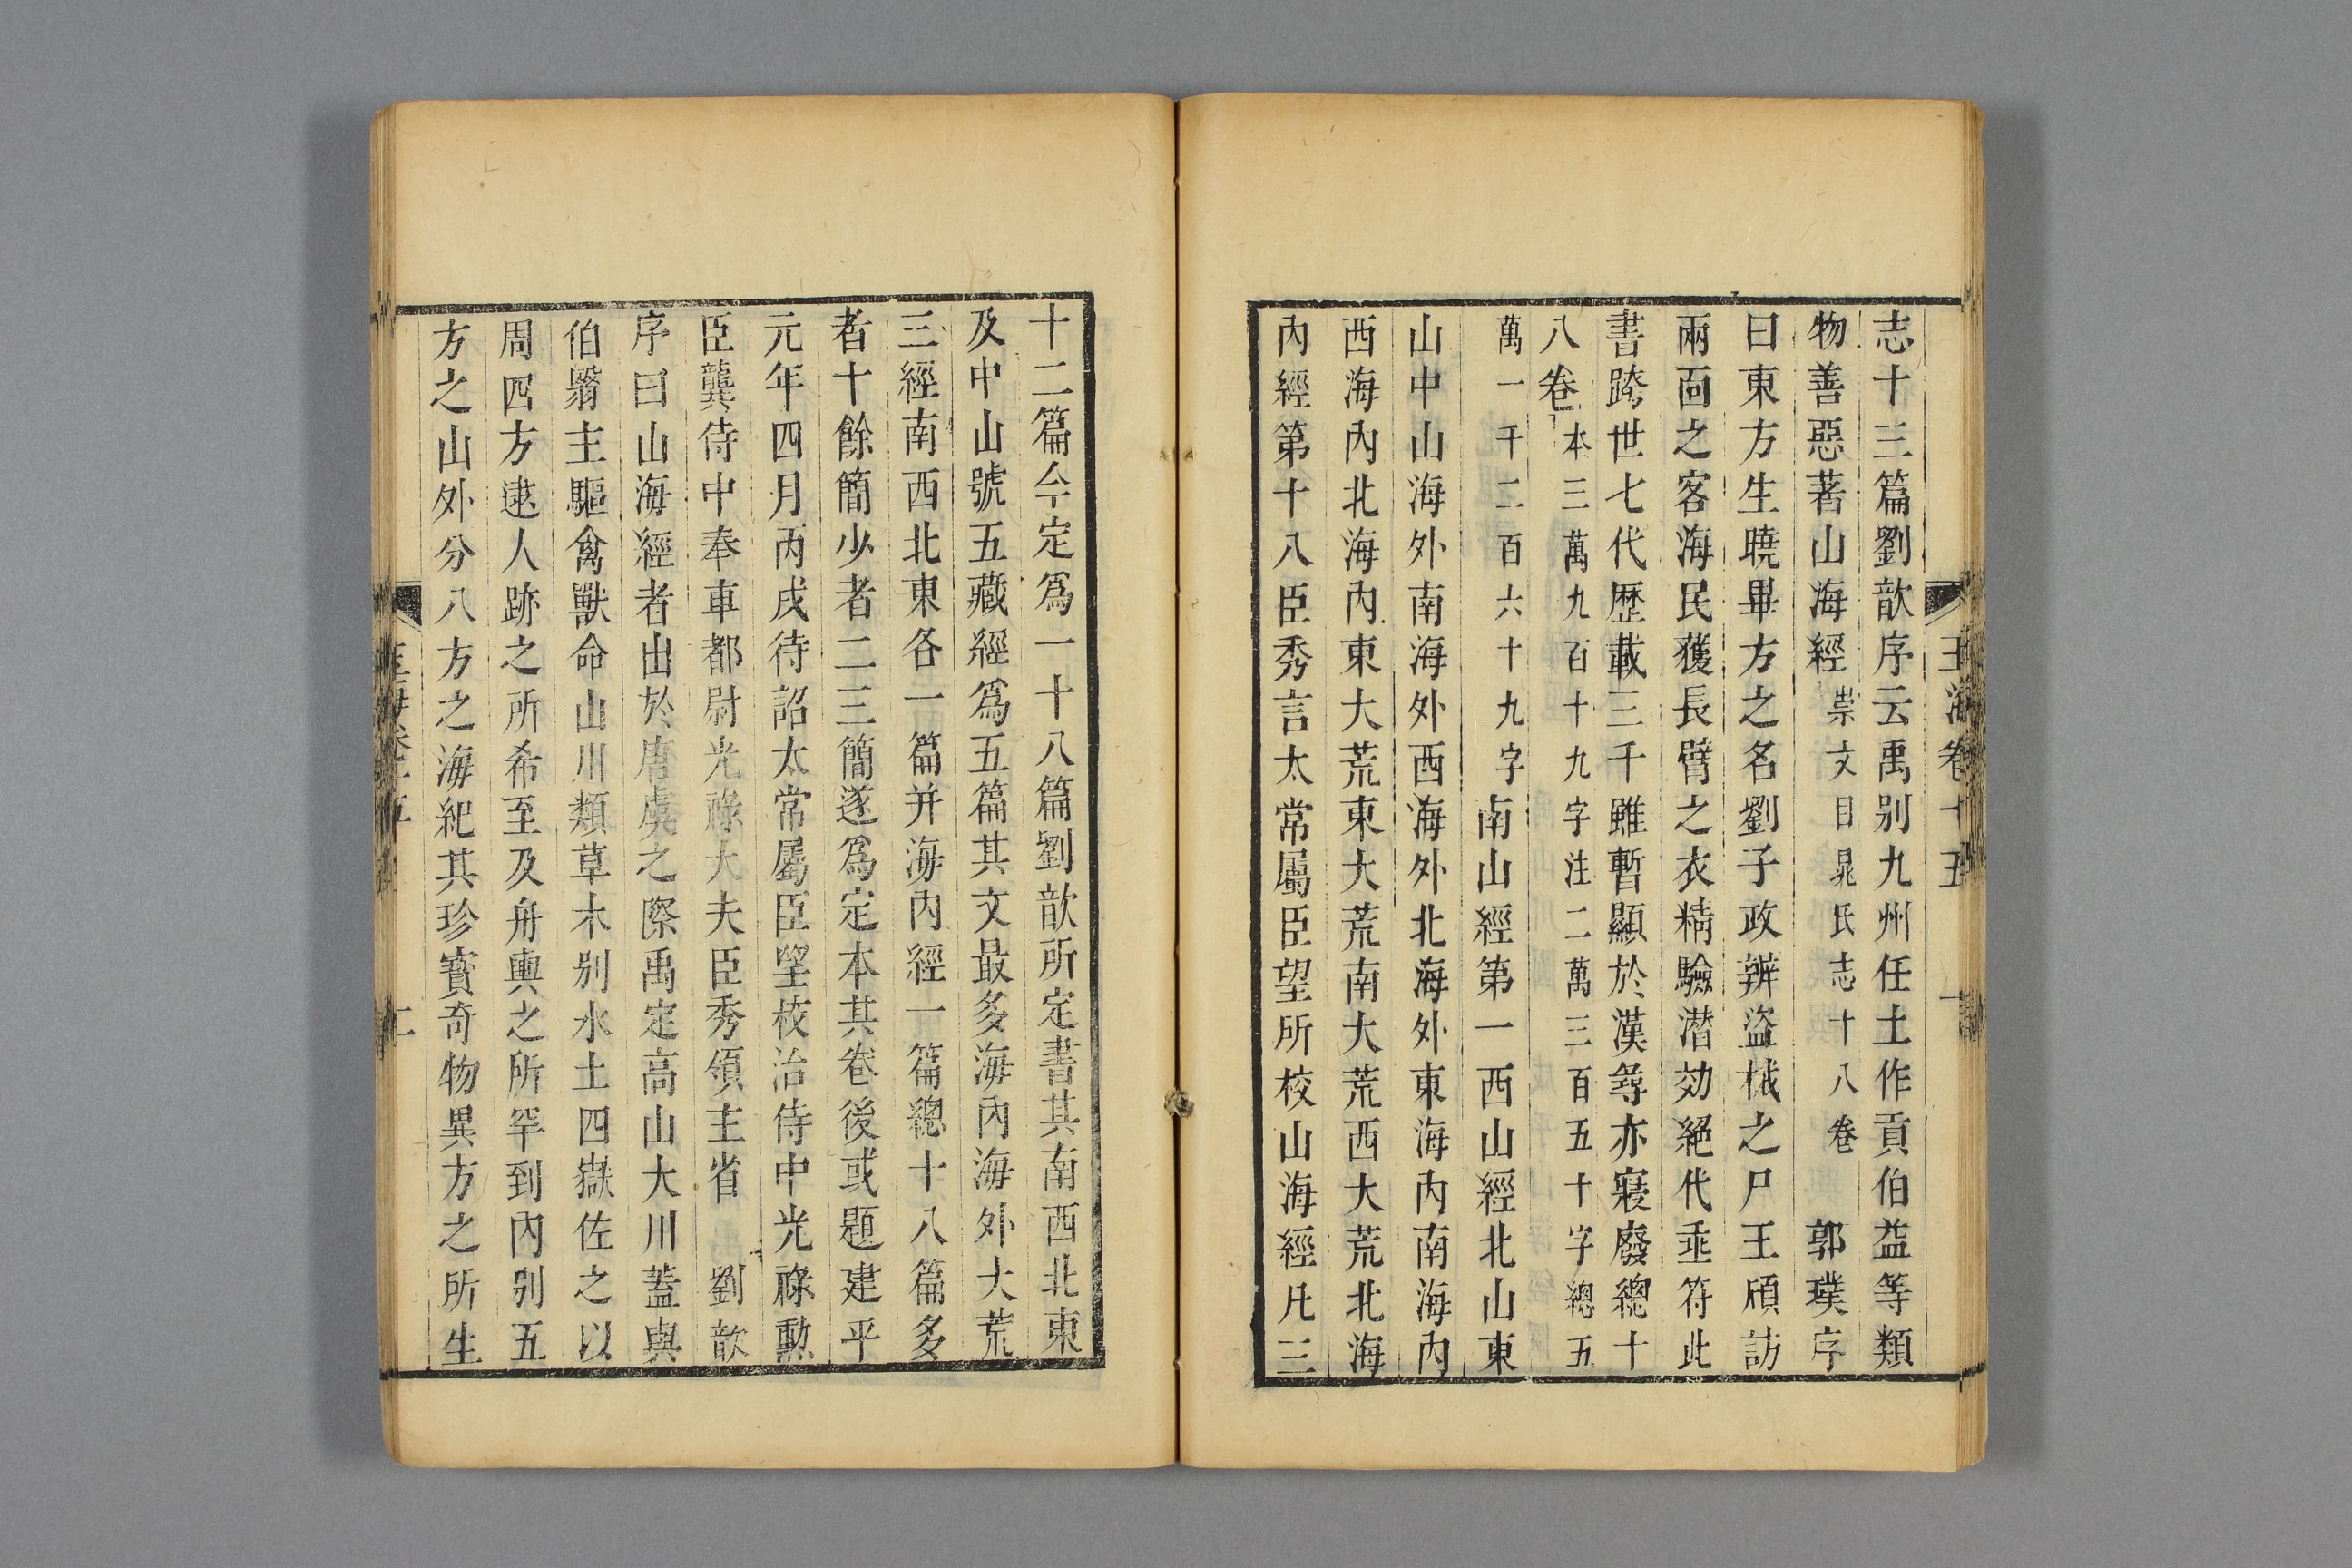 玉海卷十五 一
志十三篇劉歆序云禹别九州任土作貢伯益等類
物善惡著山海經崇文目晁氏志十八卷 郭璞序
曰東方生曉畢方之名劉子政辨盜械之尸王頎訪
兩面之客海民獲長臂之衣精驗潛効絕代乖符此
書跨世七代歷載三千雖暫顯於漢尋亦寢廢總十
八卷本三萬九百十九字注二萬三百五十字總五
萬一千二百六十九字南山經第一西山經北山東
山中山海外南海外西海外北海外東海內南海內
西海內北海內東大荒東大荒南大荒西大荒北海
內經第十八臣秀言太常屬臣望所校山海經凡三
十二篇今定爲一十八篇劉歆所定書其南西北東
及中山號五藏經爲五篇其文最多海內海外大荒
三經南西北東各一篇并海內經一篇總十八篇多
者十餘簡少者二三簡遂爲定本其卷後或題建平
元年四月丙戌待詔太常屬臣望校治侍中光祿勳
臣龔侍中奉車都尉光祿大夫臣秀領主省 劉歆
序曰山海經者出於唐虞之際禹定高山大川蓋與
伯翳主驅禽獸命山川類草木别水土四嶽佐之以
周四方逮人跡之所希至及舟輿之所罕到內别五
方之山外分八方之海紀其珍寶奇物異方之所生
二